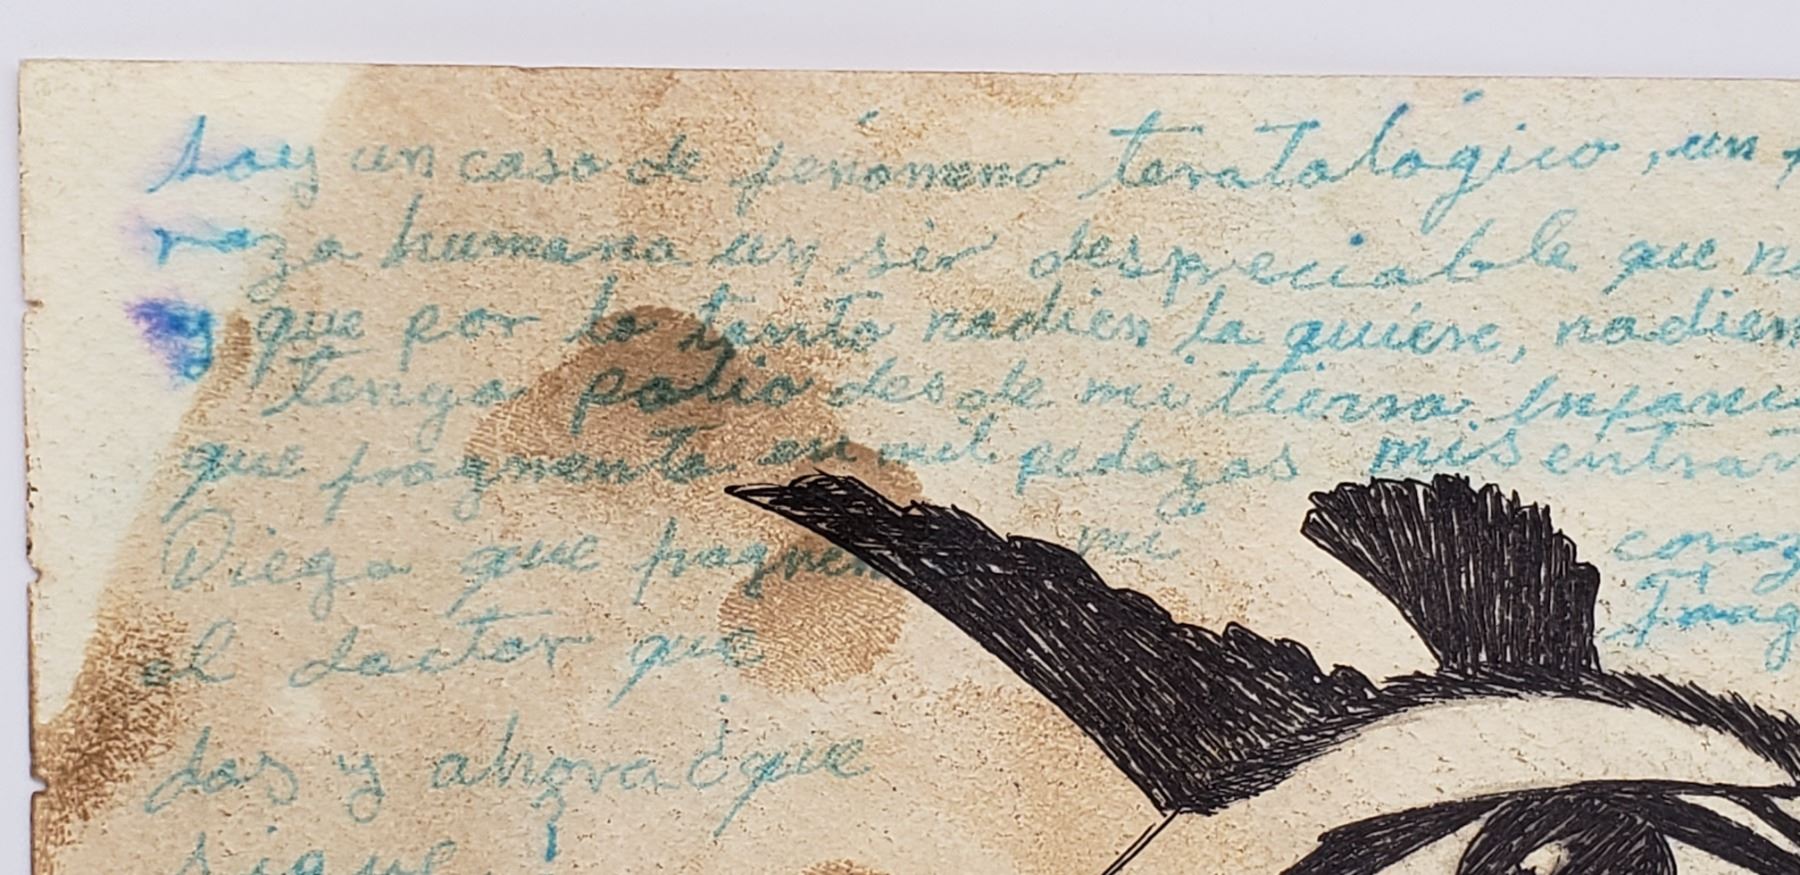 Soy un caso de fenómeno teratalógico, un
raza humana un sér despreciable que
y que por lo tanto nadien la quiere, nadien
tengo polio desde mi tierna infanci
que fragmento en mil pedazos mis entrañ
Diego que fragmen mi coraz
el doctor que Tang
das y ahora ¿que
sigue